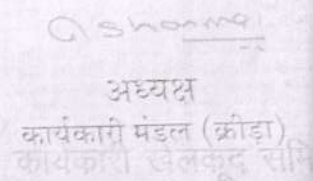 अध्यक्ष
कार्यकारी मंडल (क्रीड़ा)
कार्यकारी खेलकूद समि